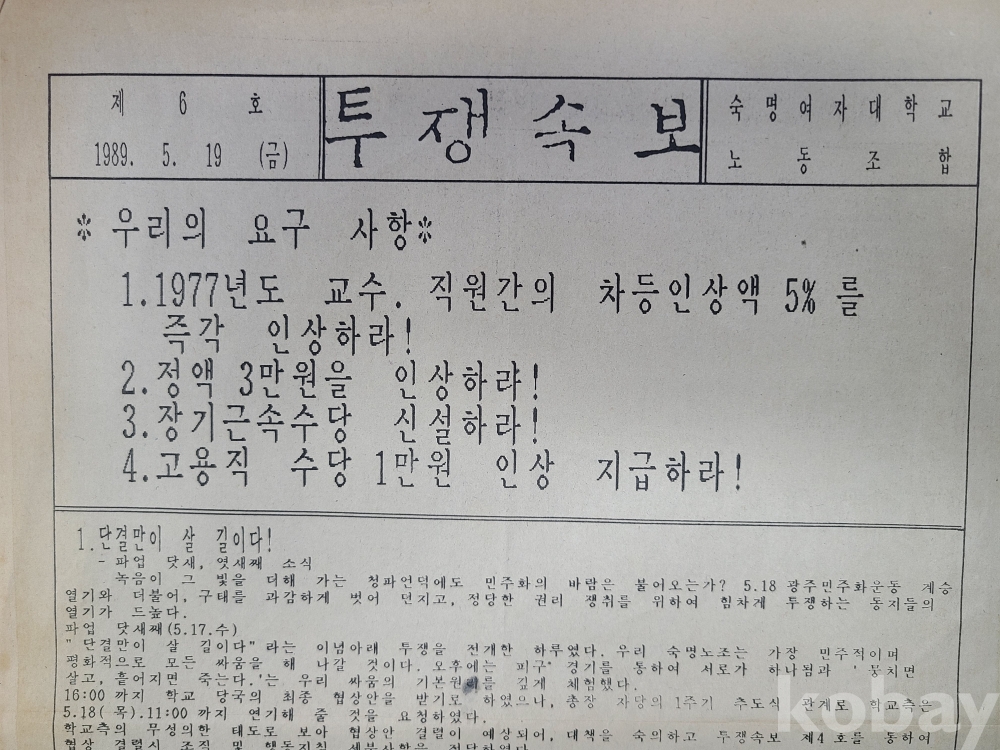 제 6 호
1989. 5. 19 (금)
투쟁속보
숙명여자대학교
노동조합
* 우리의 요구 사항*
1.1977년도 교수. 직원간의 차등인상액 5% 를
즉각 인상하라!
2.정액 3만원을 인상하라!
3.장기근속수당 신설하라!
4.고용직 수당 1만원 인상 지급하라!
1.단결만이 살 길이다!
- 파업 닷새, 엿새째 소식
녹음이 그 빛을 더해 가는 청파언덕에도 민주화의 바람은 불어오는가? 5.18 광주민주화운동 계승
열기와 더불어, 구태를 과감하게 벗어 던지고, 정당한 권리 쟁취를 위하여 힘차게 투쟁하는 동지들의
열기가 드높다.
파업 닷새째(5.17.수)
" 단결만이 살 길이다" 라는 이념아래 투쟁을 전개한 하루였다. 우리 숙명노조는 가장 민주적이며
평화적으로 모든 싸움을 해 나갈 것이다. 오후에는 피구 경기를 통하여 서로가 하나됨과 ' 뭉치면
살고, 흩어지면 죽는다.'는 우리 싸움의 기본원리를 깊게 체험했다.
16:00 까지 학교 당국의 최종 협상안을 받기로 하였으나, 총장 자당의 1주기 추도식 관계로 학교측은
5.18( 목).11:00 까지 연기해 줄 것을 요청하였다.
학교측의 무성의한 태도로 보아 협상안 결렬이 예상되어, 대책을 숙의하고 투쟁속보 제4 호를 통하여
협상 결렬시 조직 및 행동지침 세부사항을 전달하였다.
kobay